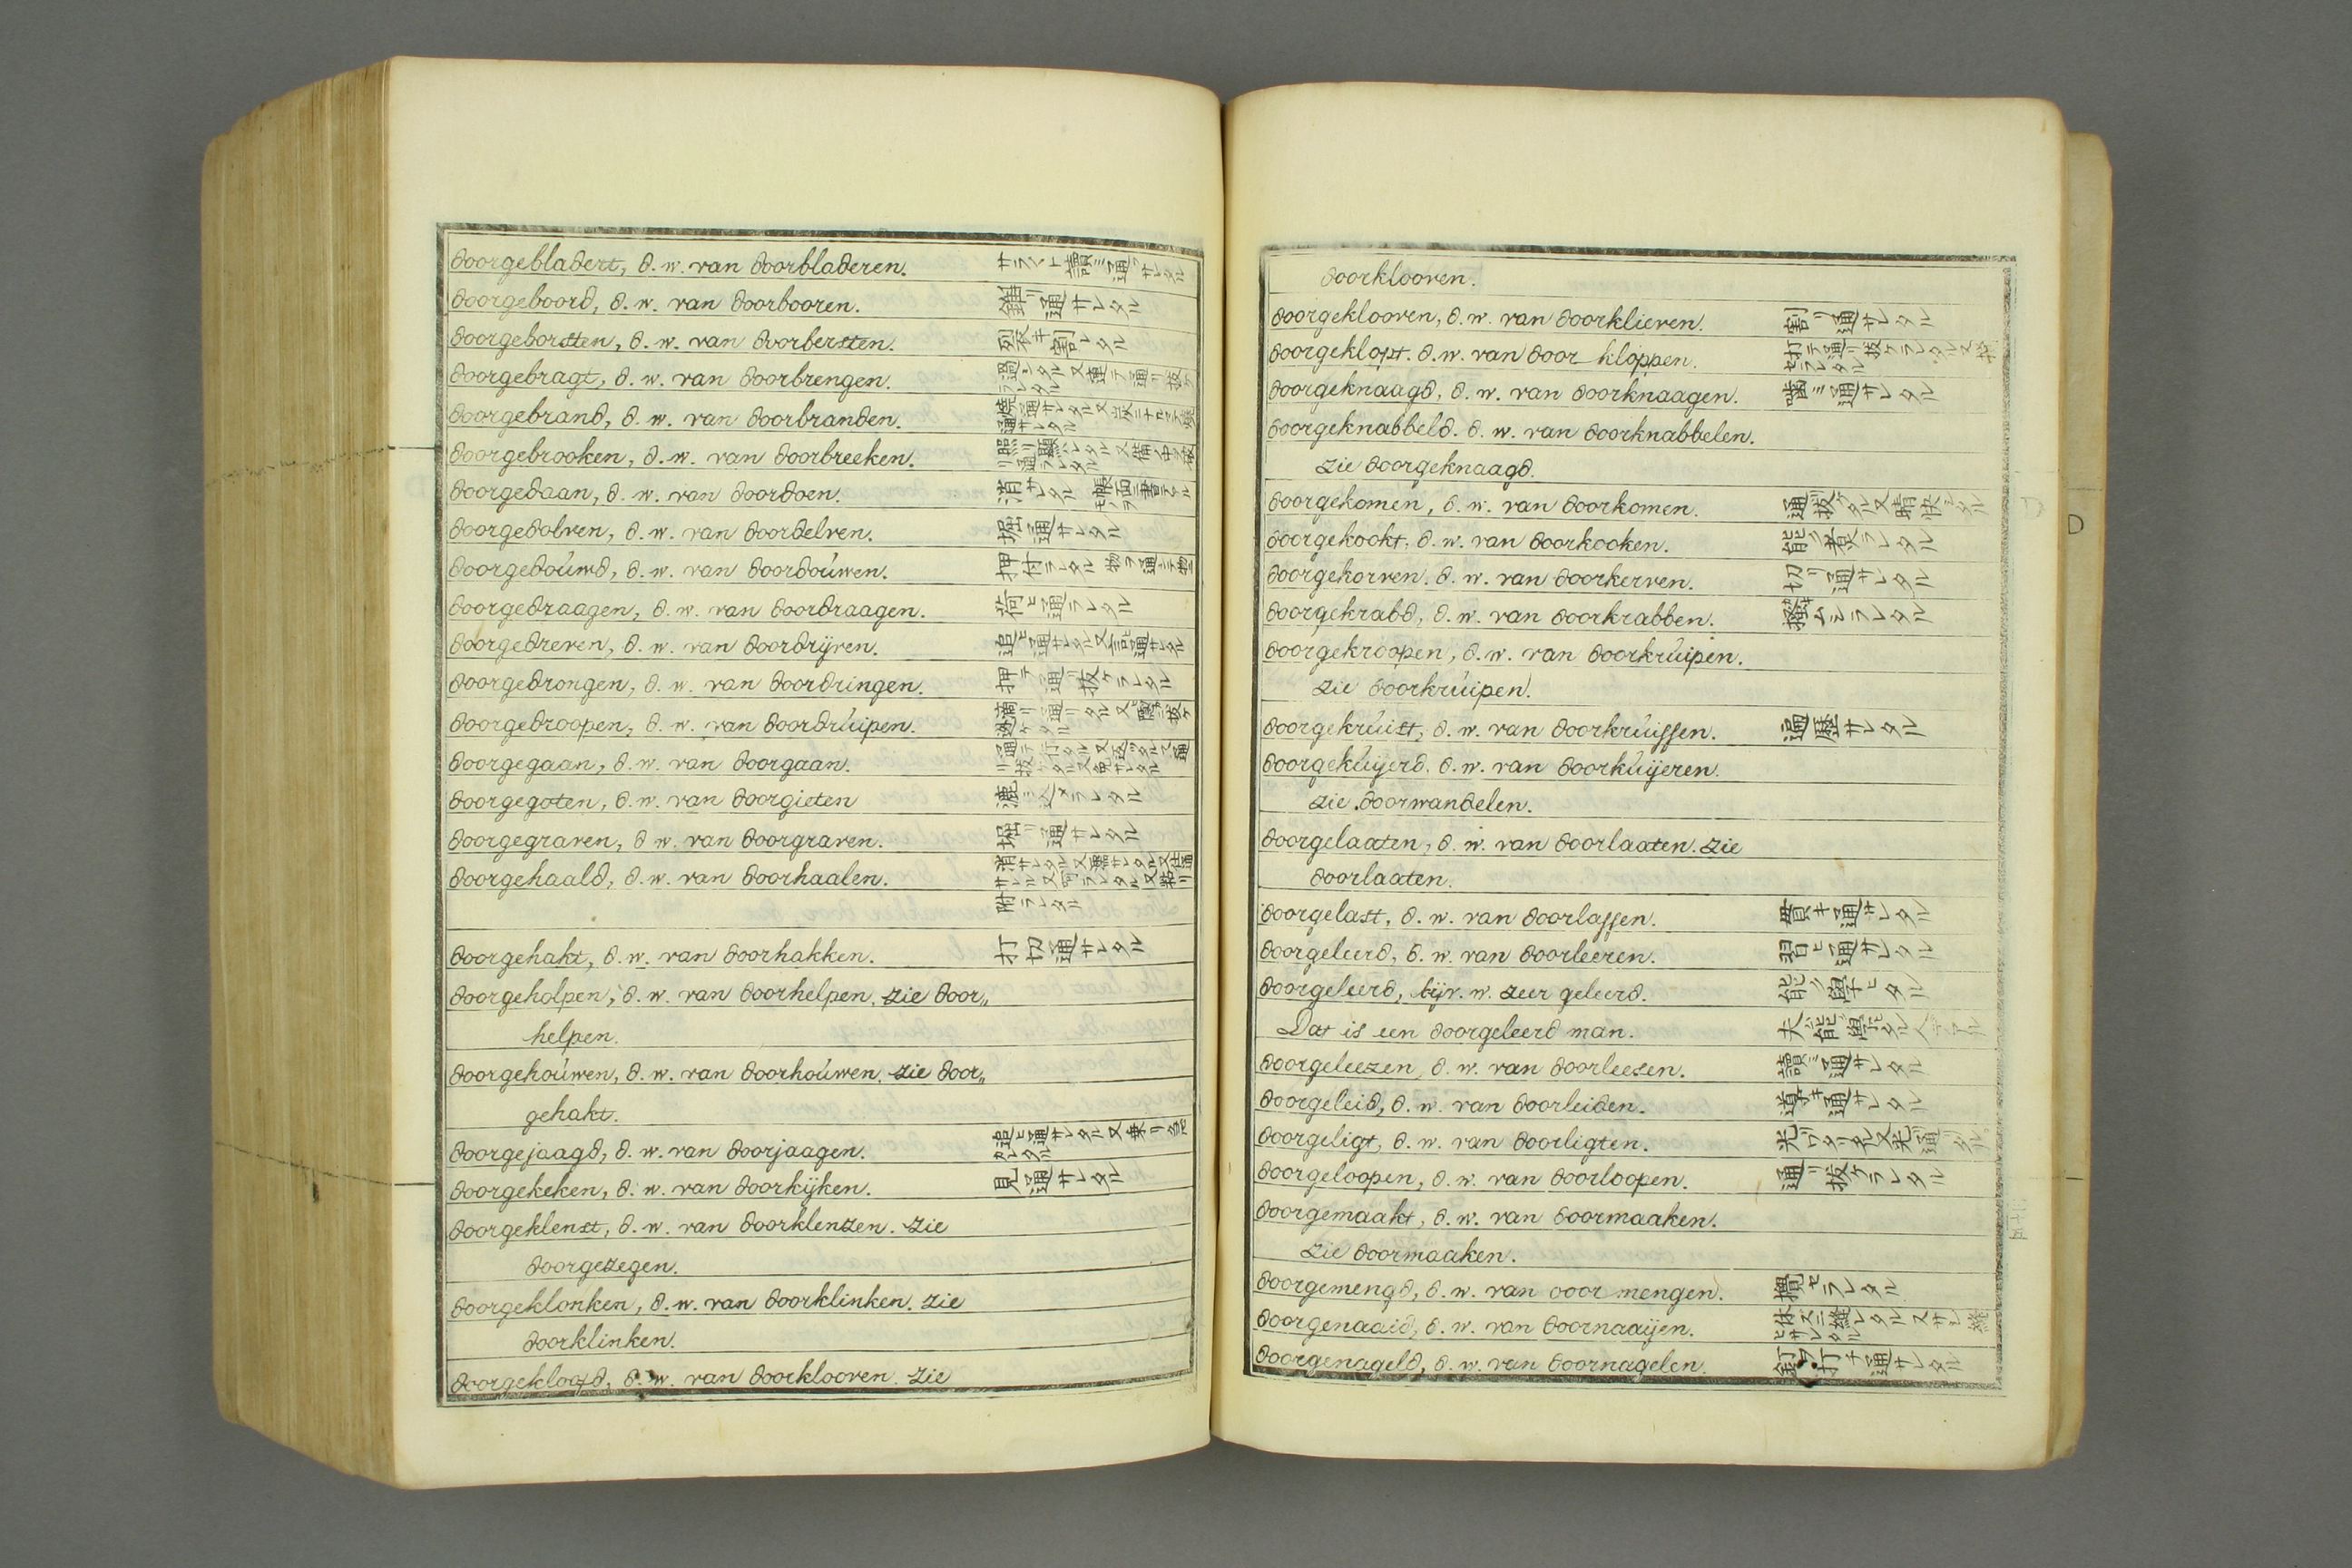 doorgebladert, d. w. van doorbladeren. サラ〳〵ト讀ミ通サレタル
doorgeboord, d. w. van doorbooren. 錐リ通サレタル
doorgeborsten, d. w. van doorbersten. 裂キ割レタル
doorgebragt, d. w. van doorbrengen. 過シタル又連テ通リ抜ケ
ラレタル
doorgebrand, d. w. van doorbranden.
通サレタル
doorgebrooken, d. w. van doorbreeken.
リ通ラレタル
doorgedaan, d. w. van doordoen. 消サレタル
doorgedolven, d. w. van doordelven. 掘通サレタル
doorgedoúwd, d. w. van doordoúwen. 押付ラレタル
doorgedraagen, d. w. van doordraagen. 荷ヒ通ラレタル
doorgedreven, d. w. van doordrijven. 追ヒ通サレタル又言ヒ通サレタル
doorgedrongen, d. w. van doordringen. 押テ通リ抜ケラレタル
doorgedroopen, d. w. van doordrúipen. 滴リ通リタル又
逃ケタル
doorgegaan, d. w. van doorgaan. 通テ行タル又
doorgegoten, d. w. van doorgieten 漉ミ込メラレタル
doorgegraven, d w. van doorgraven. 掘リ通サレタル
doorgehaald, d. w. van doorhaalen. 消サレタル又
附ラレタル
doorgehakt, d. w. van doorhakken. 打切通サレタル
doorgeholpen, d. w. van doorhelpen. zie door„
helpen.
doorgehoúwen, d. w. van doorhoúwen. zie door„
gehakt.
doorgejaagd, d. w. van doorjaagen. 追ヒ通サレタル又乗リ
タレタル
doorgekeken, d. w. van doorkijken. 見通サレタル
doorgeklenst, d. w. van doorklenzen. zie
doorgezegen.
doorgeklonken, d. w. van doorklinken. zie
doorklinken.
doorgekloofd, d. w. van doorklooven. zie
doorklooven.
doorgeklooven, d. w. van doorklieven. 割リ通サレタル
doorgeklopt. d. w. van door kloppen. 打テ通リ抜ケラレタル又
セラレタル
doorgeknaagd, d. w. van doorknaagen. 噛ミ通サレタル
doorgeknabbeld. d. w. van doorknabbelen.
zie doorgeknaagd.
doorgekomen, d. w. van doorkomen. 通リ抜ケタル又晴快シタル
doorgekookt, d. w. van doorkooken. 能ク煮ラレタル
doorgekorven. d. w. van doorkerven. 切リ通サレタル
doorgekrabd, d. w. van doorkrabben.
doorgekroopen, d. w. van doorkrúipen.
zie doorkrúipen.
doorgekrúist, d. w. van doorkrúissen. 遍歴サレタル
doorgekúijerd. d. w. van doorkúijeren.
zie doorwandelen.
doorgelaaten, d. w. van doorlaaten. zie
doorlaaten.
doorgelast, d. w. van doorlassen. 貫キ通サレタル
doorgeleerd, d. w. van doorleeren. 習ヒ通サレタル
doorgeleerd, bijv. w. zeer geleerd. 能ク學ヒタル
Dat is een doorgeleerd man. 夫ハ能ク學ヒタル人テアル
doorgeleezen, d. w. van doorleesen. 讀ミ通サレタル
doorgeleid, d. w. van doorleiden. 導キ通サレタル
doorgeligt, d. w. van doorligten. 光リワタリタル又光リ通リタル
doorgeloopen, d. w. van doorloopen. 通リ抜ケラレタル
doorgemaakt, d. w. van doormaaken.
zie doormaaken.
doorgemengd, d. w. van door mengen. 攪セラレタル
doorgenaaid, d. w. van doornaaijen. 休スニ縫レタル又
ヒサレタル
doorgenageld, d. w. van doornagelen. 釘ヲ打チ通サレタル
D